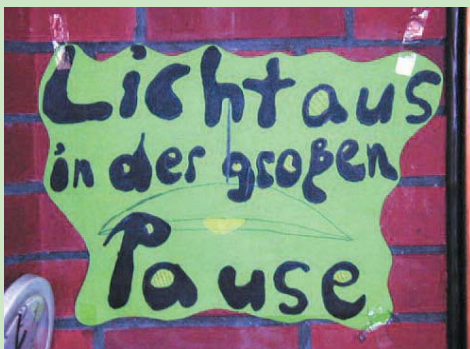 Licht aus
in der großen
Pause